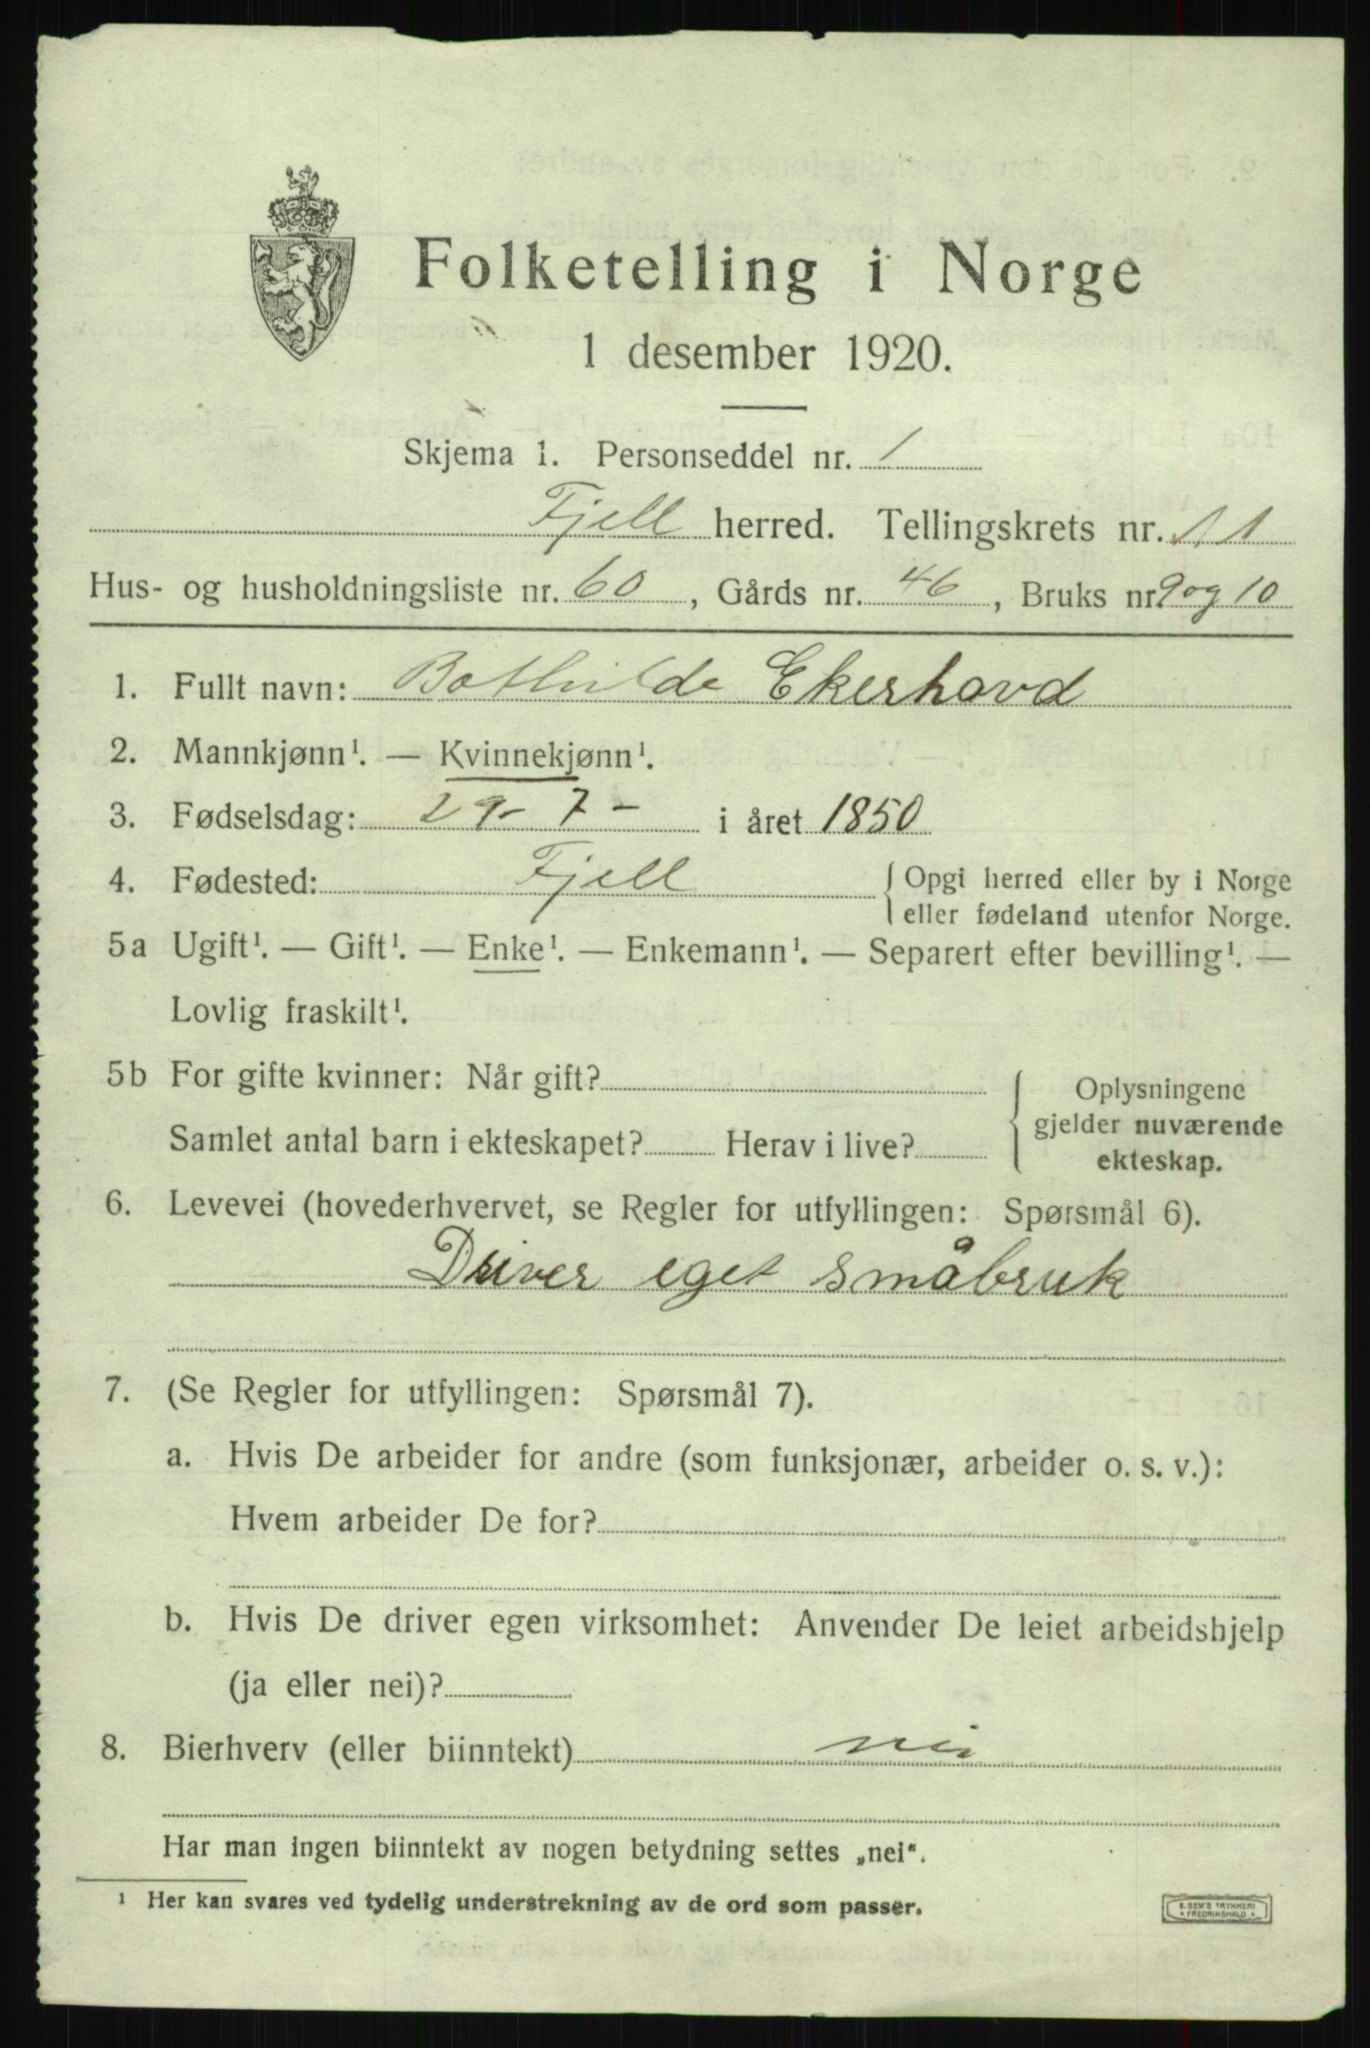 Folketelling i Norge
1 desember 1920.
Skjema 1. Personseddel nr. 1
Fjell herred. Tellingskrets nr. 11
Hus- og husholdningsliste nr. 60, Gårds nr. 46, Bruks nr. 9 og 10
1. Fullt navn: Bothilde Ekerhovd
2. Mannkjønn¹. — Kvinnekjønn¹.
3. Fødselsdag: 29 - 7 - i året 1850
4. Fødested: Fjell { Opgi herred eller by i Norge
eller fødeland utenfor Norge.
5a Ugift¹. — Gift¹. — Enke¹. — Enkemann¹. — Separert efter bevilling¹. —
Lovlig fraskilt¹.
5b For gifte kvinner: Når gift? { Oplysningene
gjelder nuværende
Samlet antal barn i ekteskapet? Herav i live?
ekteskap.
6. Levevei (hovederhvervet, se Regler for utfyllingen: Spørsmål 6).
Driver eget småbruk
7. (Se Regler for utfyllingen: Spørsmål 7).
a. Hvis De arbeider for andre (som funksjonær, arbeider o. s. v.):
Hvem arbeider De for?
b. Hvis De driver egen virksomhet: Anvender De leiet arbeidshjelp
(ja eller nei)?
8. Bierhverv (eller biinntekt) nei
Har man ingen biinntekt av nogen betydning settes „nei“.
¹ Her kan svares ved tydelig understrekning av de ord som passer.
E. SEM'S TRYKKERI
* FREDRIKSHALD *